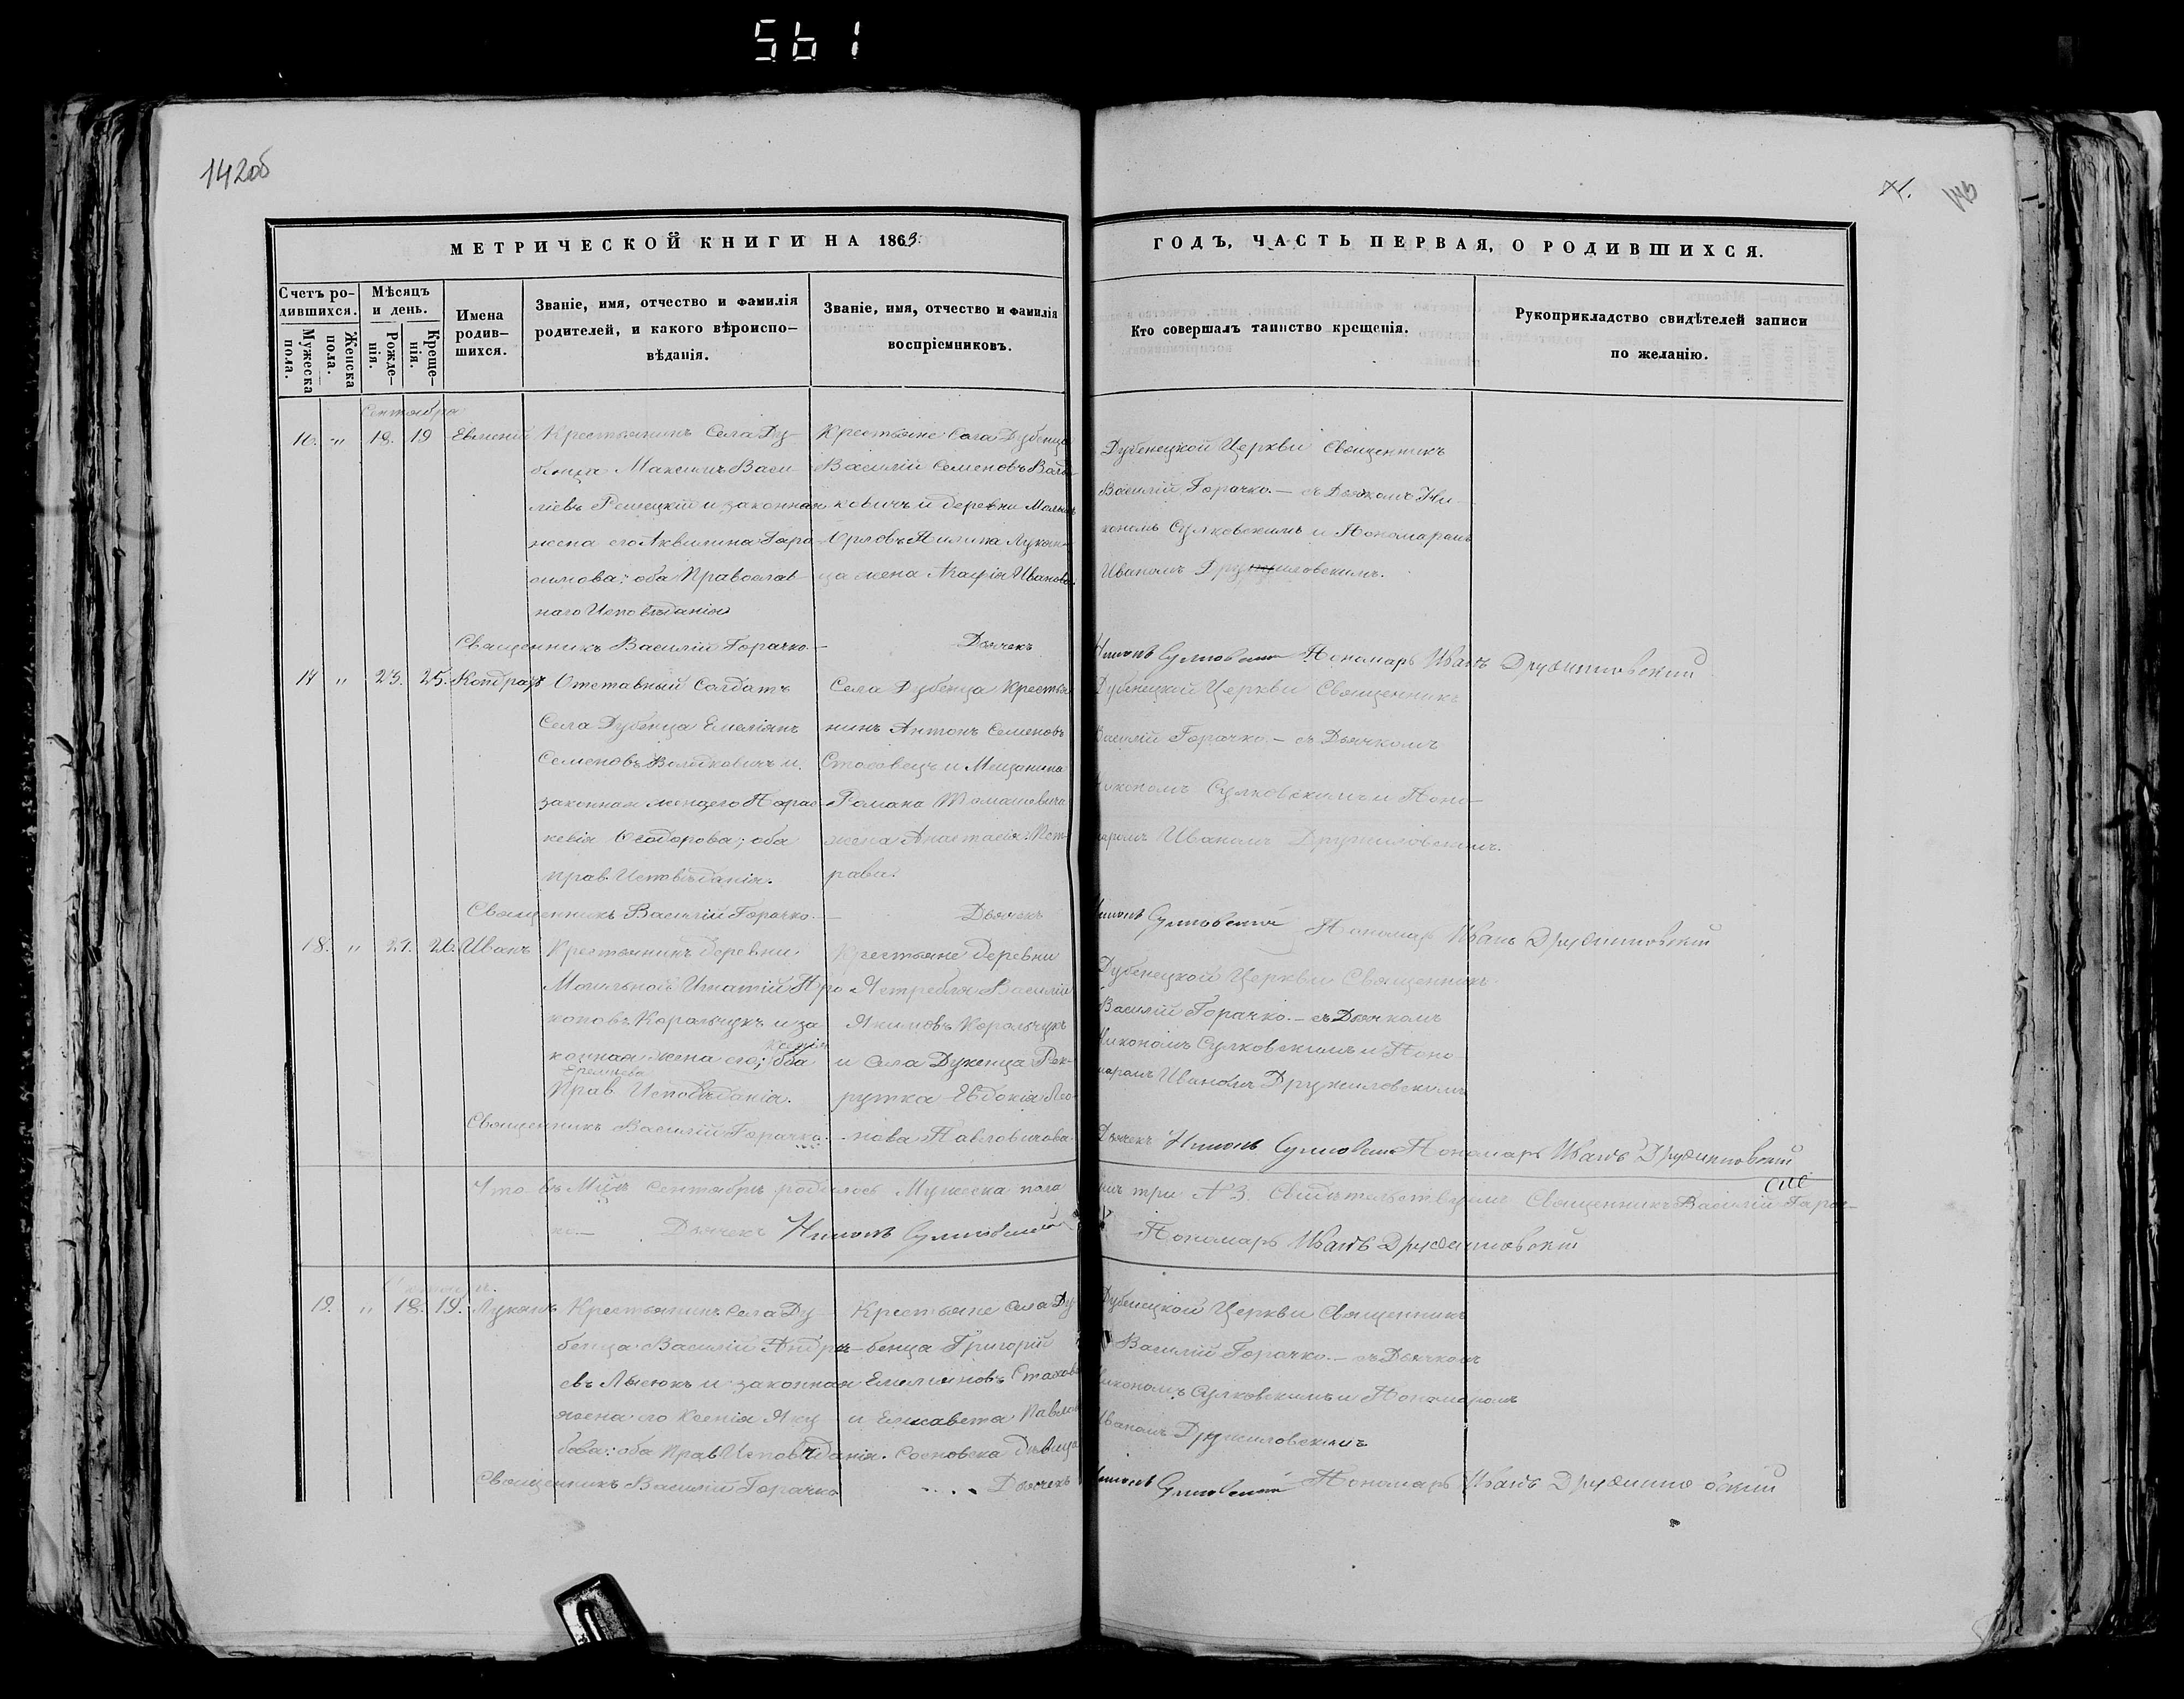 561
142об
МЕТРИЧЕСКОЙ КНИГИ НА 1863
ГОДЪ, ЧАСТЬ ПЕРВАЯ, О РОДИВШИХСЯ.
Счетъ ро-
дившихся.
Мужеска
пола.
Женска
пола.
Мѣсяцъ
и день.
Рожде-
нія.
Креще-
нія.
Имена
родив-
шихся.
Званіе, имя, отчество и фамилія
родителей, и какого вѣроиспо-
вѣданія.
Званіе, имя, отчество и фамилія
воспріемниковъ.
Кто совершалъ таинство крещенія.
Рукоприкладство свидѣтелей записи
по желанію.
Сентября
16. " 18. 19 Евмений Крестьянинъ Села Ду-
бенца Максимъ Васи-
ліевъ и законная
жена его Аквилина
оба Православ-
наго Исповѣданія
Крестьяне Села Дубенца
Василій Семеновъ
ковичъ и деревни
жена Агафія Иванова.
Дубенецкой Церкви Священникъ
Василій Горачко. — съ Дьячкомъ Ни-
кономъ Сулковскимъ и Пономаремъ
Иваномъ Дружиловскимъ.
Священникъ Василій Горачко. — Дьячекъ Никонъ Сулковскій Пономарь Иванъ Дружиловскій
17 " 23. 25. Кондратъ Отставный Солдатъ
Села Дубенца Емеліянъ
Семеновъ Володковичъ и
законная жена его Парас-
кевія Ѳеодорова; оба
прав. Исповѣданія.
Села Дубенца Крестья
нинъ Антонъ Семеновъ
Стасовецъ и Мещанина
Романа Томашевича
жена Анастасія Пет-
рова.
Дубенецкой Церкви Священникъ
Василій Горачко. — съ Дьячкомъ
Никономъ Сулковскимъ и Поно-
маремъ Иваномъ Дружиловскимъ.
Священникъ Василій Горачко. — Дьячекъ Никонъ Сулковскій Пономарь Иванъ Дружиловскій
18. " 21. 26. Иванъ Крестьянинъ деревни
Могильной Игнатій Про
коповъ Корольчукъ и за-
конная жена его Ксенія; оба
Прав. Исповѣданія.
Крестьяне деревни
Ястребля Василій
Якимовъ Корольчукъ
и Села Дубенца Рек-
рутка Евдокія Лео-
нова Павловичова
Дубенецкой Церкви Священникъ
Василій Горачко. — съ Дьячкомъ
Никономъ Сулковскимъ и Поно-
маремъ Иваномъ Дружиловскимъ
Священникъ Василій Горачко. Дьячекъ Никонъ Сулковскій Пономарь Иванъ Дружиловскій
Что въ Мцѣ Сентябрѣ родилось Мужеска пола три № 3. Свидѣтельствуемъ сіе Священникъ Василій Горач-
ко — Дьячекъ Никонъ Сулковскій Пономарь Иванъ Дружиловскій
19. " 18. 19. Лукашъ Крестьянинъ Села Ду-
бенца Василій Андре-
евъ Лысюкъ и законная
жена его Ксенія Яку
бова: оба Прав. Исповѣданія.
Крестьяне Села Ду-
бенца Григорій
Емельяновъ
и Елисавета Павлова
Сосновска дѣвица
Дубенецкой Церкви Священникъ
Василій Горачко. — съ Дьячкомъ
Никономъ Сулковскимъ и Пономаремъ
Иваномъ Дружиловскимъ
Священникъ Василій Горачко Дьячекъ Никонъ Сулковскій Пономарь Иванъ Дружиловскій